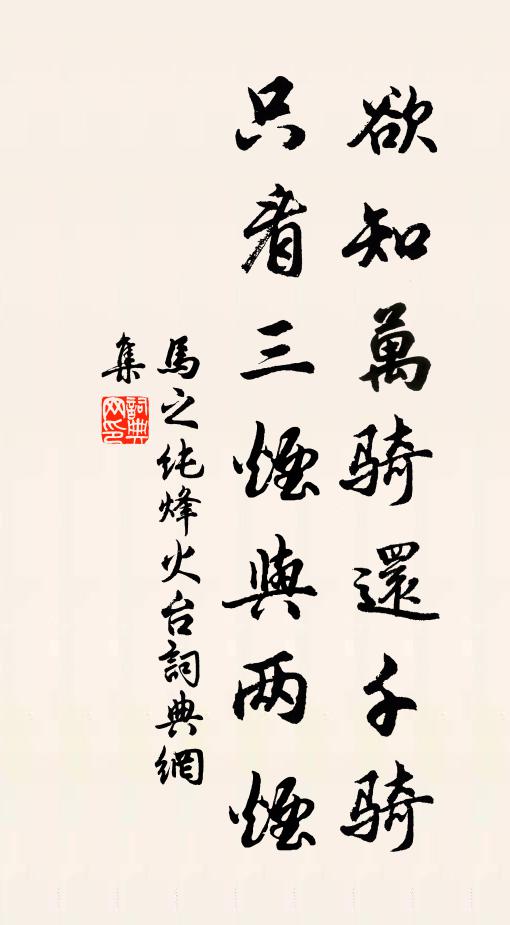 欲知萬騎還千騎
只看三煙與兩煙
馬之純烽火台詞典網
集
詞典网印